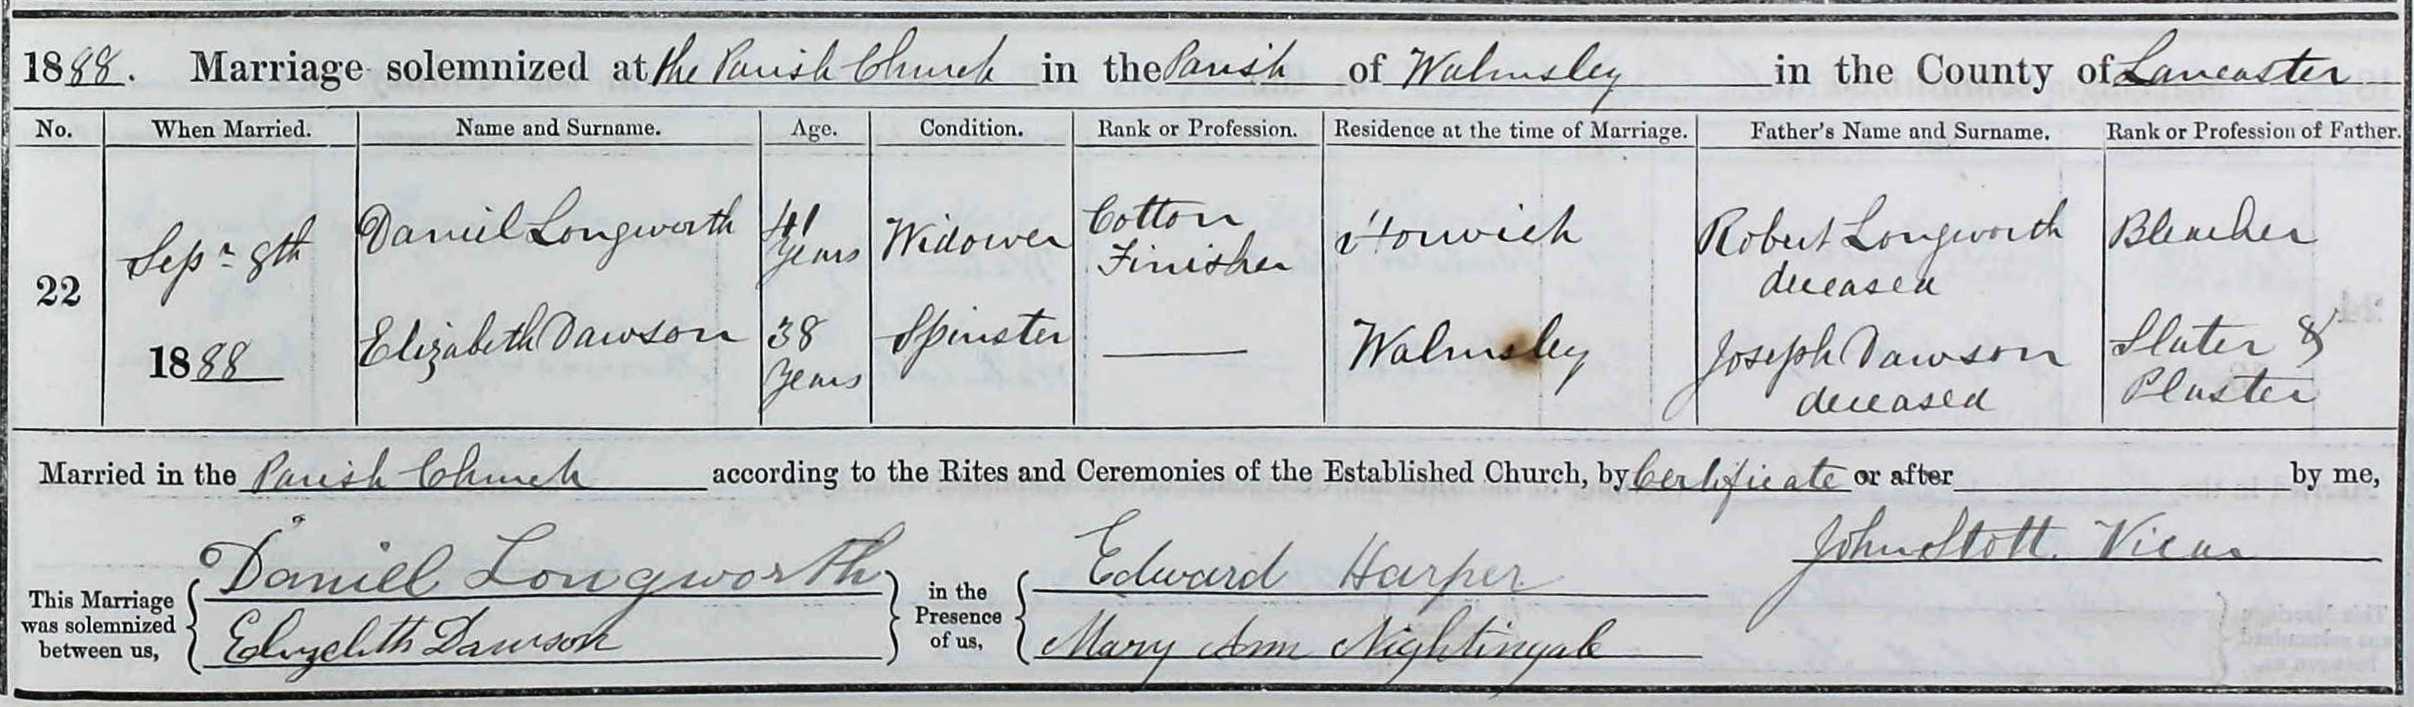 1888. Marriage solemnized at the Parish Church in the Parish of Walmsley in the County of Lancaster
No. When Married. Name and Surname. Age. Condition. Rank or Profession. Residence at the time of Marriage. Father's Name and Surname. Rank or Profession of Father.
22 Sepr 8th 1888
Daniel Longworth 41 Years Widower Cotton Finisher Horwich Robert Longworth deceased Bleacher
Elizabeth Dawson 38 Years Spinster — Walmsley Joseph Dawson deceased Slater & Plaster
Married in the Parish Church according to the Rites and Ceremonies of the Established Church, by Certificate or after by me,
John Stott. Vicar
This Marriage was solemnized between us, Daniel Longworth Elizabeth Dawson
in the Presence of us, Edward Harper Mary Ann Nightingale